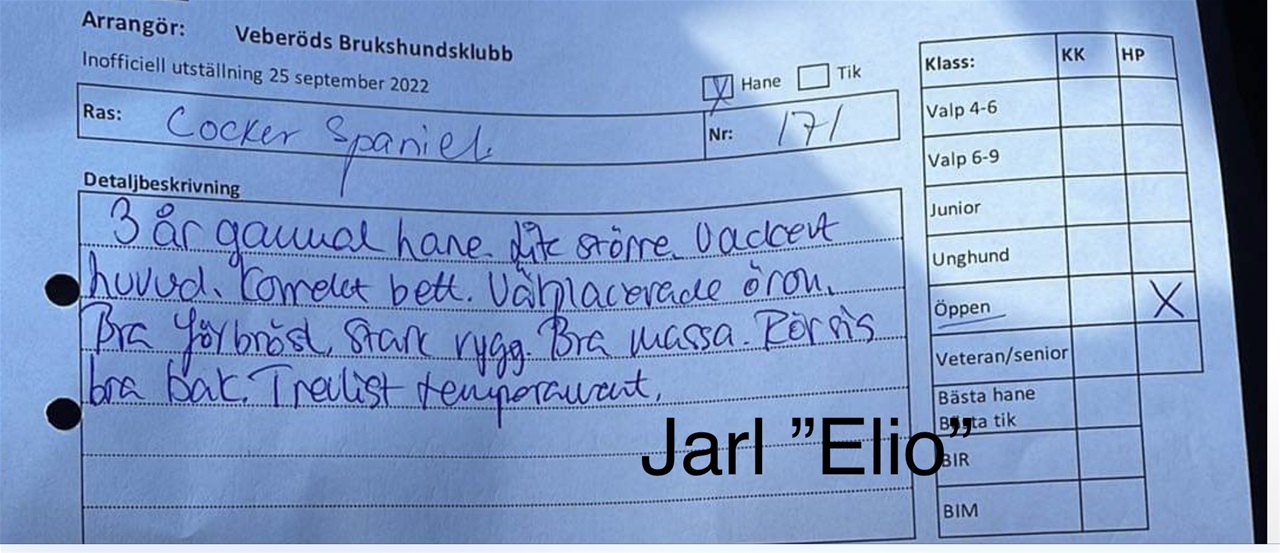 Arrangör: Veberöds Brukshundsklubb
Inofficiell utställning 25 september 2022
Hane Tik
Ras: Cocker Spaniel. Nr: 171
Detaljbeskrivning
3 år gammal hane. Lite större. Vackert
huvud. Korrekt bett. Välplacerade öron.
Bra förbröst, stark rygg. Bra massa. Rör sig
bra bak. Trevligt temperament.
Jarl ”Elio”
Klass: KK HP
Valp 4-6
Valp 6-9
Junior
Unghund
Öppen X
Veteran/senior
Bästa hane
Bästa tik
BIR
BIM